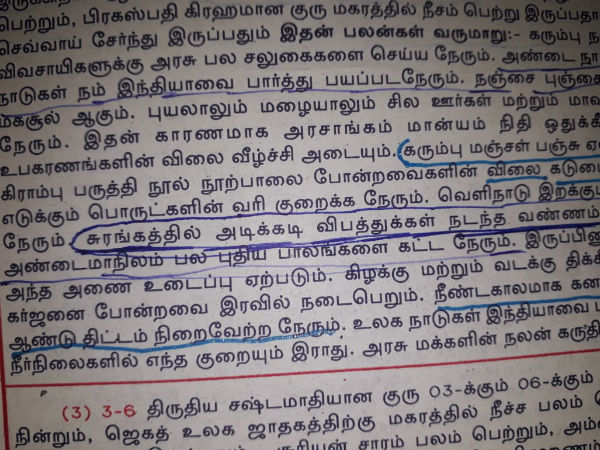 பெற்றும், பிரகஸ்பதி கிரஹமான குரு மகரத்தில் நீசம் பெற்று இருப்பதா
செவ்வாய் சேர்ந்து இருப்பதும் இதன் பலன்கள் வருமாறு:- கரும்பு ந
விவசாயிகளுக்கு அரசு பல சலுகைகளை செய்ய நேரும். அண்டை நா
நாடுகள் நம் இந்தியாவை பார்த்து பயப்படநேரும். நஞ்சை புஞ்சை
மகசூல் ஆகும். புயலாலும் மழையாலும் சில ஊர்கள் மற்றும் மாவ
நேரும். இதன் காரணமாக அரசாங்கம் மான்யம் நிதி ஒதுக்கீ
உபகரணங்களின் விலை வீழ்ச்சி அடையும். கரும்பு மஞ்சள் பஞ்சு ஏ
கிராம்பு பருத்தி நூல் நூற்பாலை போன்றவைகளின் விலை கடுமை
எடுக்கும் பொருட்களின் வரி குறைக்க நேரும். வெளிநாடு இறக்கும
நேரும். சுரங்கத்தில் அடிக்கடி விபத்துக்கள் நடந்த வண்ணம்
அண்டைமாநிலம் பல புதிய பாலங்களை கட்ட நேரும். இருப்பினு
அந்த அணை உடைப்பு ஏற்படும். கிழக்கு மற்றும் வடக்கு திக்கி
கர்ஜனை போன்றவை இரவில் நடைபெறும். நீண்டகாலமாக கன
ஆண்டு திட்டம் நிறைவேற்ற நேரும். உலக நாடுகள் இந்தியாவை ப
நீர்நிலைகளில் எந்த குறையும் இராது. அரசு மக்களின் நலன் கருதி
(3) 3-6 திருதிய சஷ்டமாதியான குரு 03-க்கும் 06-க்கும்
நின்றும், ஜெகத் உலக ஜாதகத்திற்கு மகரத்தில் நீச்ச பலம்
சூரியன் சாரம் பலம் பெற்றும், அம்